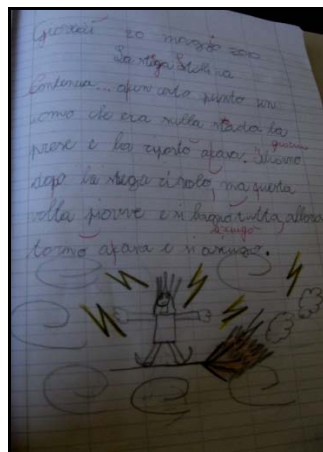 Giovedì 20 maggio 2010
La strega Stellina
Continua... a un certo punto un
uomo che era nella strada la
prese e la riportò a casa. Il giorno
dopo la strega ci volò, ma questa
volta piovve e si bagnò tutta, allora
tornò a casa e si asciugò.